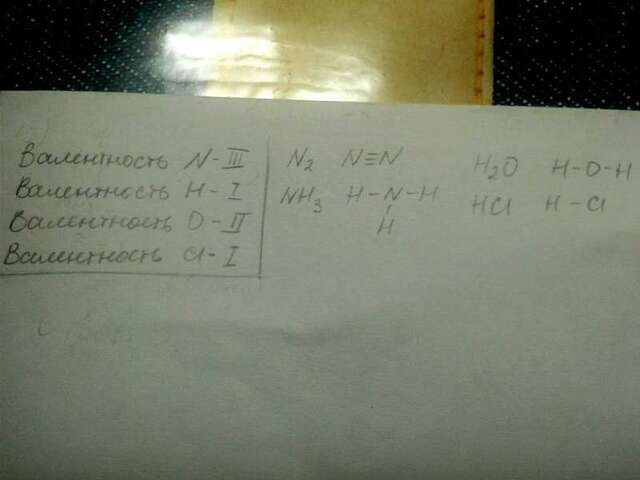 Валентность N-III
Валентность H-I
Валентность O-II
Валентность Cl-I
N₂ N≡N
NH₃ H-N-H
H
H₂O H-O-H
HCl H-Cl